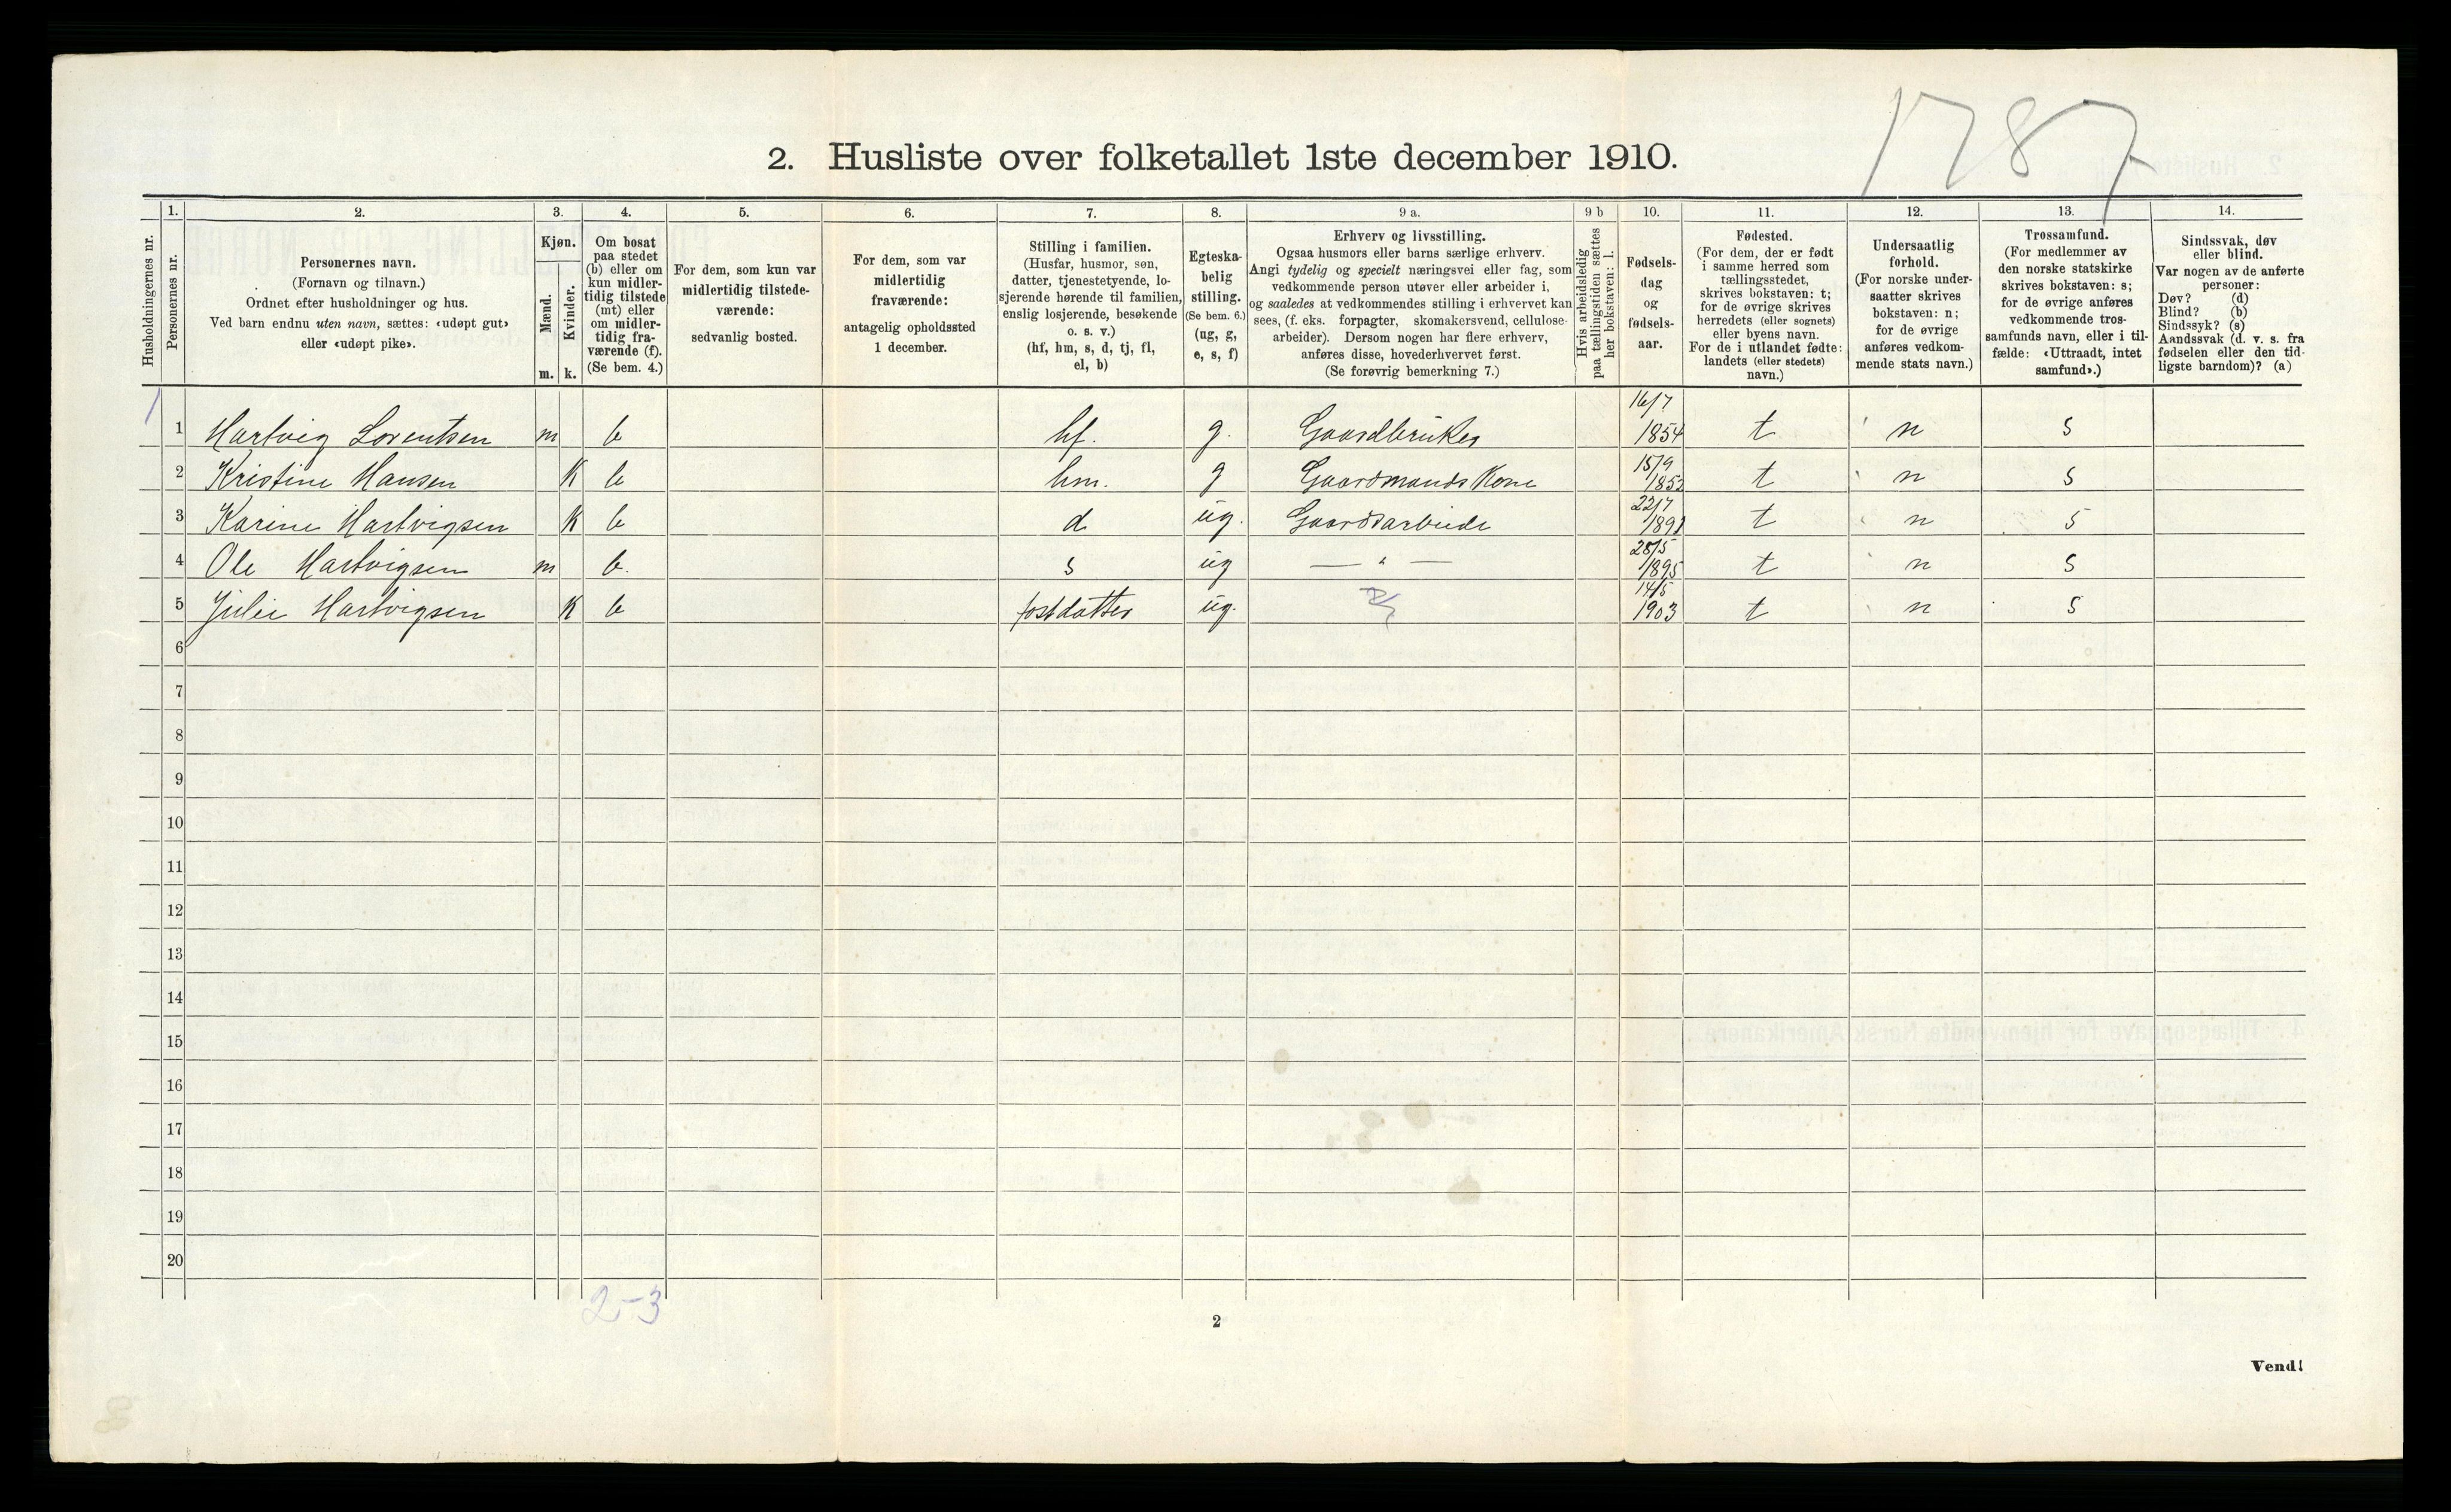 1787
2. Husliste over folketallet 1ste december 1910.
Husholdningernes nr.
1. Personernes nr.
2. Personernes navn.
(Fornavn og tilnavn.)
Ordnet efter husholdninger og hus.
Ved barn endnu uten navn, sættes: «udøpt gut»
eller «udøpt pike».
3. Kjøn.
Mænd. m.
Kvinder. k.
4. Om bosat
paa stedet
(b) eller om
kun midler-
tidig tilstede
(mt) eller
om midler-
tidig fra-
værende (f).
(Se bem. 4.)
5. For dem, som kun var
midlertidig tilstede-
værende:
sedvanlig bosted.
6. For dem, som var
midlertidig
fraværende:
antagelig opholdssted
1 december.
7. Stilling i familien.
(Husfar, husmor, søn,
datter, tjenestetyende, lo-
sjerende hørende til familien,
enslig losjerende, besøkende
o. s. v.)
(hf, hm, s, d, tj, fl,
el, b)
8. Egteska-
belig
stilling.
(Se bem. 6.)
(ug, g,
e, s, f)
9 a. Erhverv og livsstilling.
Ogsaa husmors eller barns særlige erhverv.
Angi tydelig og specielt næringsvei eller fag, som
vedkommende person utøver eller arbeider i,
og saaledes at vedkommendes stilling i erhvervet kan
sees, (f. eks. forpagter, skomakersvend, cellulose-
arbeider). Dersom nogen har flere erhverv,
anføres disse, hovederhvervet først.
(Se forøvrig bemerkning 7.)
9 b Hvis arbeidsledig
paa tællingstiden sættes
her bokstaven: l.
10. Fødsels-
dag
og
fødsels-
aar.
11. Fødested.
(For dem, der er født
i samme herred som
tællingsstedet,
skrives bokstaven: t;
for de øvrige skrives
herredets (eller sognets)
eller byens navn.
For de i utlandet fødte:
landets (eller stedets)
navn.)
12. Undersaatlig
forhold.
(For norske under-
saatter skrives
bokstaven: n;
for de øvrige
anføres vedkom-
mende stats navn.)
13. Trossamfund.
(For medlemmer av
den norske statskirke
skrives bokstaven: s;
for de øvrige anføres
vedkommende tros-
samfunds navn, eller i til-
fælde: «Uttraadt, intet
samfund».)
14. Sindssvak, døv
eller blind.
Var nogen av de anførte
personer:
Døv? (d)
Blind? (b)
Sindssyk? (s)
Aandssvak (d. v. s. fra
fødselen eller den tid-
ligste barndom)? (a)
1 1 Hartvig Lorentsen m b hf. g. Gaardbruker 16/7 1854 t n s
2 Kristine Hansen K b hm. g Gaardmands Kone 15/9 t n s
3 Karine Hartvigsen K b d ug. Gaardsarbeide 22/7 t n s
4 Ole Hartvigsen m b. s ug — " — 28/5 1895 t n s
5 Julie Hartvigsen K b fostdatter ug. 14/5 1903 t n s
6
7
8
9
10
11
12
13
14
15
16
17
18
19
20
2-3
2
Vend!